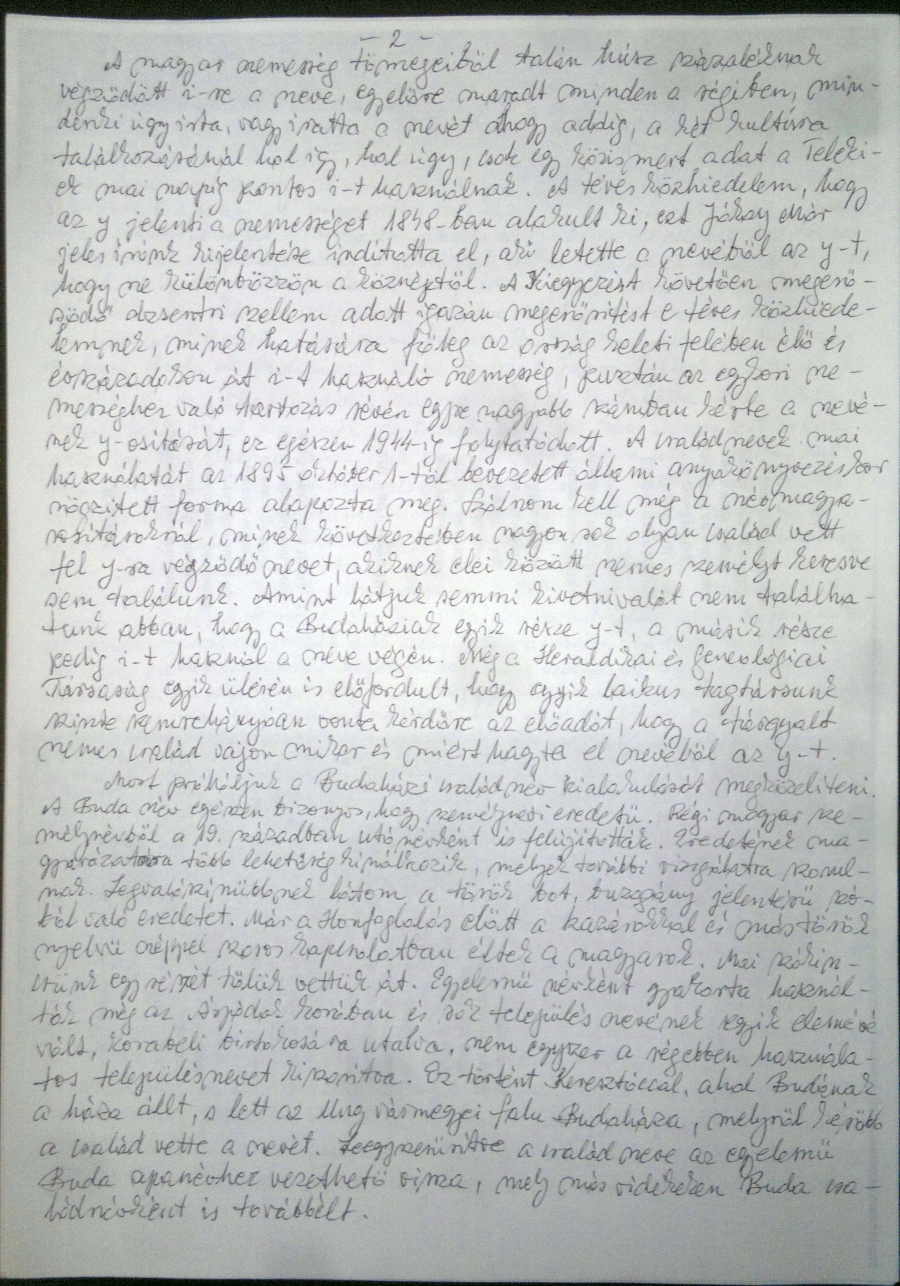 - 2 -
A magyar nemesség tömegeiből talán húsz százaléknak
végződött i-re a neve, egyelőre maradt minden a régiben, min-
denki úgy írta, vagy íratta a nevét ahogy addig, a két kultúra
találkozásánál hol így, hol úgy, csak egy közismert adat a Teleki-
ek mai napig pontos i-t használnak. A téves közhiedelem, hogy
az y jelenti a nemességet 1848-ban alakult ki, ezt Jókay Mór
jeles írónk kijelentése indította el, aki letette a nevéből az y-t,
hogy ne különbözzön a köznéptől. A Kiegyezést követően megerő-
södő dzsentri szellem adott igazán megerősítést e téves közhiede-
lemnek, minek hatására főleg az ország keleti felében élő és
évszázadokon át i-t használó nemesség, pusztán az egykori ne-
mességhez való tartozás révén egyre nagyobb számban kérte a nevé-
nek y-osítását, ez egészen 1944-ig folytatódott. A családnevek mai
használatát az 1895 október 1-től bevezetett állami anyakönyvezéskor
rögzített forma alapozta meg. Szólnom kell még a névmagya-
rosításoknál, minek következtében nagyon sok olyan család vett
fel y-ra végződő nevet, akiknek elei között nemes személyt keresve
sem találunk. Amint látjuk semmi kivetnivalót nem találha-
tunk abban, hogy a Budaháziak egyik része y-t, a másik része
pedig i-t használ a neve végén. Még a Heraldikai és Geneológiai
Társaság egyik ülésén is előfordult, hogy egyik laikus tagtársunk
szinte szemrehányóan vonta kérdőre az előadót, hogy a tárgyalt
nemes család vajon mikor és miért hagyta el nevéből az y-t.
Most próbáljuk a Budaházi család név kialakulását megközelíteni.
A Buda név egészen bizonyos, hogy személynévi eredetű. Régi magyar sze-
mélynévből a 19. században utónévként is felújították. Eredetének ma-
gyarázatára több lehetőség kínálkozik, melyek további vizsgálatra szorul-
nak. Legvalószínűbbnek látom a török bot, buzogány jelentésű szó-
ból való eredetet. Már a Honfoglalás előtt a kazárokkal és más török
nyelvű néppel szoros kapcsolatban éltek a magyarok. Mai szókin-
csünk egy részét tőlük vettük át. Egyelemű névként gyakorta használ-
ták még az Árpádok korában és sok település nevének egyik elemévé
vált, korabeli birtokosára utalva, nem egyszer a régebben használa-
tos településnevet kiszorítva. Ez történt Keresztóccal, ahol Budának
a háza állt, s lett az Ung vármegyei falu Budaháza, melyről később
a család vette a nevét. Leegyszerűsítve a család neve az egyelemű
Buda apanévhez vezethető vissza, mely más vidékeken Buda csa-
ládnévként is továbbélt.